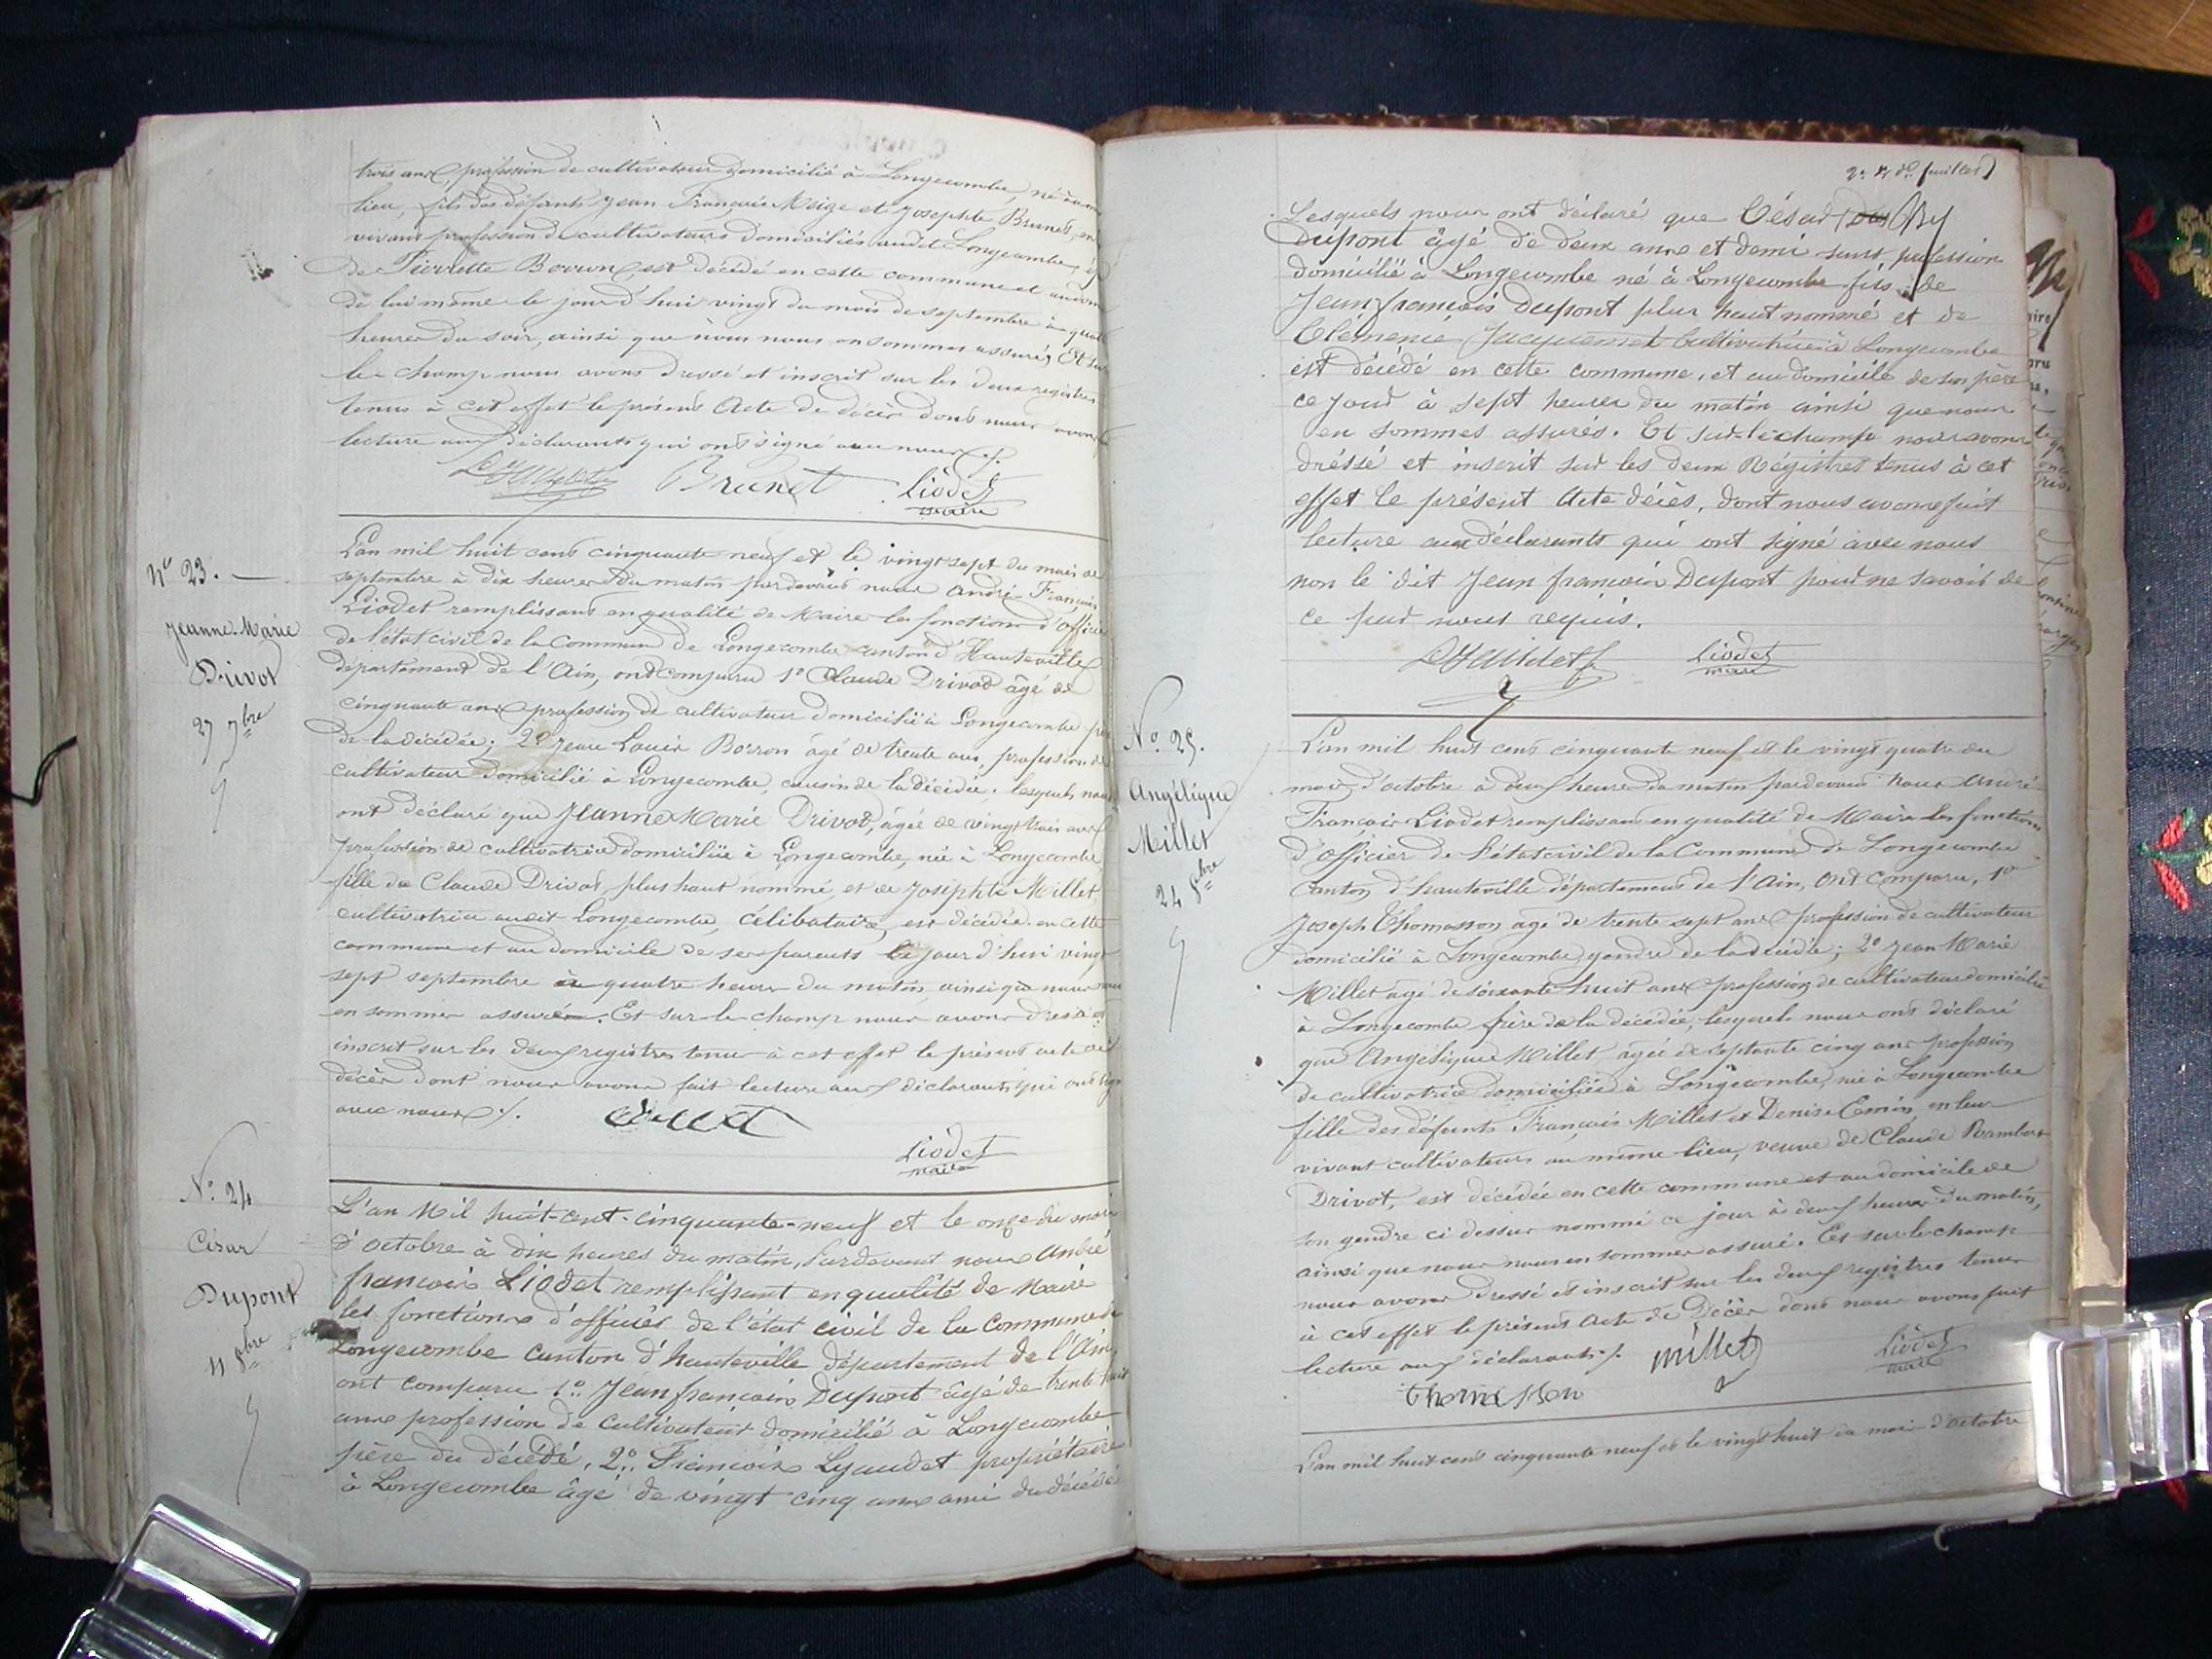 trois ans, profession de cultivateur domicilié à Longecombe, né au
lieu, fils des défunts Jean François Meige et Josephte Brunet, en
vivant profession de cultivateurs domiciliés audit Longecombe,
de Pierrette Borron est décédé en cette commune et au dom
de lui même le jour d'hui vingt du mois de septembre à quat
heures du soir, ainsi que nous nous en sommes assurés Et sur
le champ nous avons dressé et inscrit sur les deux registres
tenus à cet effet le présent Acte de décès dont nous avons
lecture aux déclarants qui ont signé avec nous ./.
Brunet Liodet
maire
N° 23.
Jeanne-Marie
Drivot
27 7bre
L'an mil huit cent cinquante neuf et le vingt sept du mois de
septembre à dix heures du matin pardevant nous André François
Liodet remplissant en qualité de Maire les fonctions d'officier
de l'état civil de la Commune de Longecombe canton d'Hauteville
département de l'Ain, ont comparu 1° Claude Drivot âgé de
cinquante ans profession de cultivateur domicilié à Longecombe père
de la décédée; 2° Jean Louis Borron âgé de trente ans, profession de
cultivateur domicilié à Longecombe, cousin de la décédée. lesquels nous
ont déclaré que Jeanne Marie Drivot, âgée de vingt trois ans
profession de cultivatrice domiciliée à Longecombe, née à Longecombe
fille de Claude Drivot, plus haut nommé, et de Josephte Millet,
cultivatrice audit Longecombe, célibataire, est décédée en cette
commune et au domicile de ses parents le jour d'hui vingt
sept septembre à quatre heures du matin, ainsi que nous nous
en sommes assurés. Et sur le champ nous avons dressé et
inscrit sur les deux registres tenus à cet effet le présent acte de
décès dont nous avons fait lecture aux déclarants qui ont signé
avec nous ./.
Liodet
maire
N° 24
César
Dupont
11 8bre
L'an Mil huit-cent-cinquante-neuf et le onze du mois
d'octobre à dix heures du matin, Pardevant nous André
françois Liodet remplissant en qualité de Maire
les fonctions d'officier de l'état civil de la Commune de
Longecombe canton d'hauteville département de l'Ain,
ont comparu 1° Jean françois Dupont âgé de trente huit
ans profession de cultivateur domicilié à Longecombe
père du décédé, 2° François Lyaudet propriétaire
à Longecombe âgé de vingt cinq ans ami du décédé
feuillet
Lesquels nous ont déclaré que César
Dupont âgé de deux ans et demi sans profession
domicilié à Longecombe né à Longecombe fils de
Jean françois Dupont plus haut nommé et de
Clémence Jacquemet Cultivatrice à Longecombe
est décédé en cette commune, et au domicile de son père
ce jour à sept heures du matin ainsi que nous
en sommes assurés. Et sur-le-champ nous avons
dréssé et inscrit sur les deux Régistres tenus à cet
effet le présent Acte décès, dont nous avons fait
lecture aux déclarants qui ont signé avec nous
non le dit Jean françois Dupont pour ne savoir de
ce par nous requis.
Liodet
maire
N° 25.
Angélique
Millet
24 8bre
L'an mil huit cent cinquante neuf et le vingt quatre du
mois d'octobre à deux heures du matin pardevant nous André
François Liodet remplissant en qualité de Maire les fonctions
d'officier de l'état civil de la Commune de Longecombe
canton d'hauteville département de l'Ain, Ont comparu, 1°
Joseph Thomasson âgé de trente sept ans profession de cultivateur
domicilié à Longecombe gendre de la décédée; 2° Jean Marie
Millet âgé de soixante huit ans profession de cultivateur domicilié
à Longecombe frère de la décédée, lesquels nous ont déclaré
que Angélique Millet, âgée de septante cinq ans profession
de cultivatrice domiciliée à Longecombe, née à Longecombe
fille des défunts François Millet et Denise Emin, en leur
vivant cultivateurs au même lieu, veuve de Claude Rambert
Drivot, est décédée en cette commune et au domicile de
son gendre ci dessus nommé ce jour à deux heures du matin,
ainsi que nous nous en sommes assuré. Et sur le champ
nous avons dressé et inscrit sur les deux registres tenus
à cet effet le présent Acte de Décès dont nous avons fait
lecture aux déclarants ./. Millet Liodet
maire
Thomasson
L'an mil huit cent cinquante neuf et le vingt huit du mois d'octobre